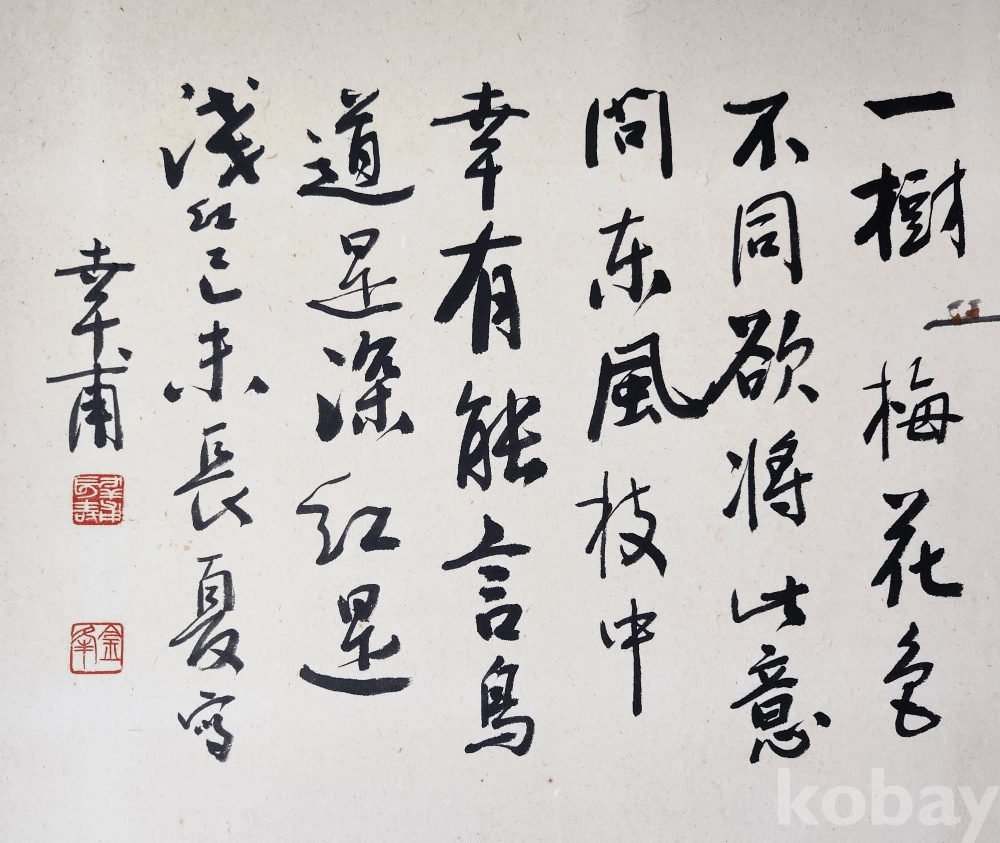 一樹梅花色
不同欲将此意
問东風枝中
幸有能言鳥
道是深紅是
淺紅己未長夏寫
幸甫
幸甫長壽
kobay